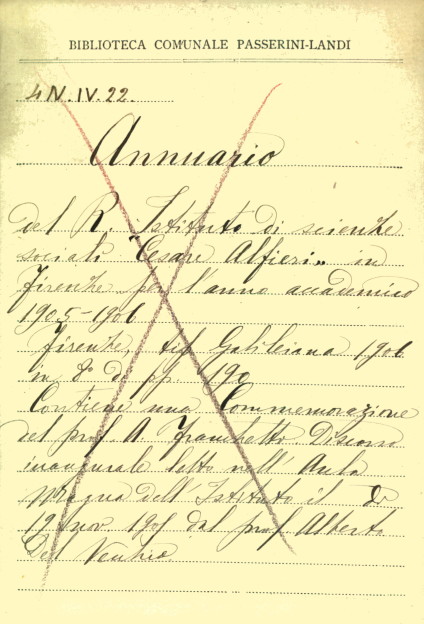 BIBLIOTECA COMUNALE PASSERINI-LANDI
4 N. IV. 22.
Annuario
del R. Istituto di scienze
sociali "Cesare Alfieri" in
Firenze per l'anno accademico
1905-1906
Firenze, tip. Galileiana 1906
in 8° di pp. 190
Contiene una Commemorazione
del prof. A. Franchetti. Discorso
inaugurale letto nell'Aula
magna dell'Istituto il dì
19 nov 1905 dal prof Alberto
Del Vecchio